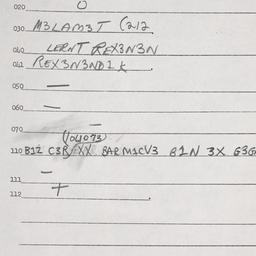 020 O
030 M3LAM3T (212
040 LERNT REX3N3N
041 REX3N3ND1K
050 —
060 —
070 —
(104073)
110 B1Z C3R/XX BARM1CV3 B1N 3X G3G
111 —
112 +